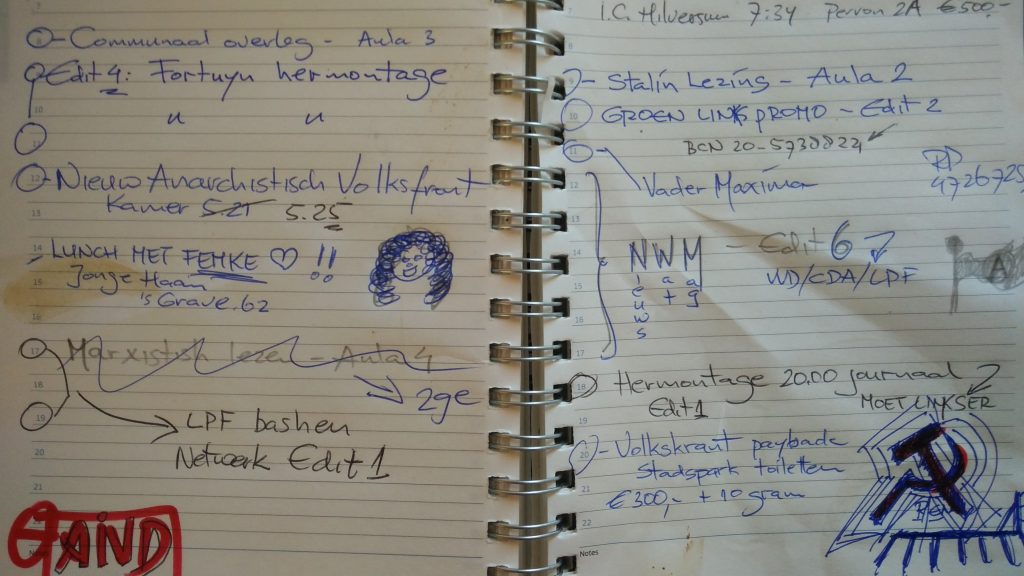 Communaal overleg - Aula 3
Edit 4: Fortuyn hermontage
" "
Nieuw Anarchistisch Volksfront
Kamer 5.21 5.25
LUNCH MET FEMKE ♡ !!
Jonge Haan
's Grave.62
Marxistish lezen - Aula 4
2ge
LPF bashen
Netwerk Edit 1
I.C. Hilversum 7:34 Perron 2A €500,-
Stalin Lezing - Aula 2
GROEN LINKS PROMO - Edit 2
BCN 20-5738824
Vader Maxima
4726725
NWM - Edit 6
Nieuws Wat Mag
WD/CDA/LPF
A
Hermontage 20.00 journaal
Edit 1
MOET LINKSER
Volkskrant payback
Stadspark toiletten
€300,- + 10 gram
Notes